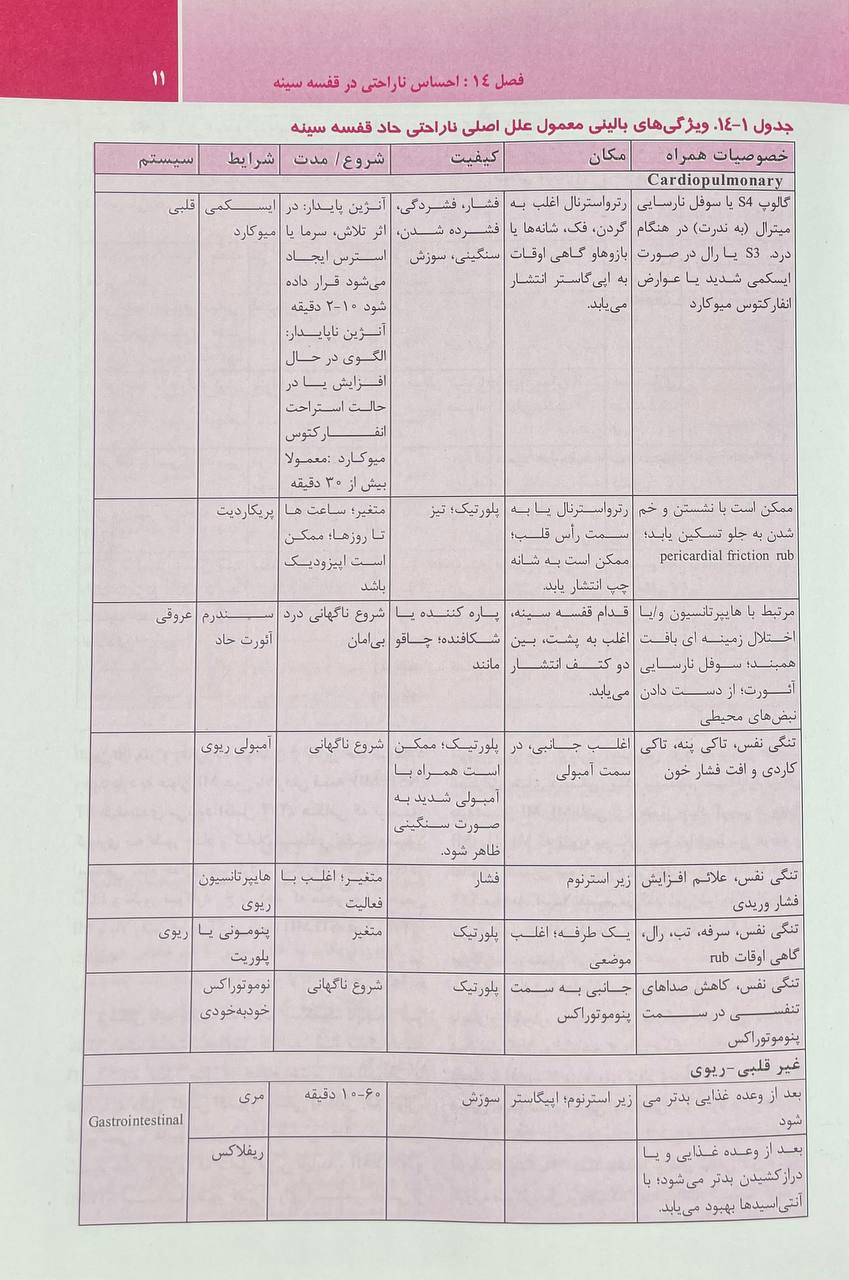 فصل ۱۴ : احساس ناراحتی در قفسه سینه
۱۱
جدول ۱-۱۴. ویژگی‌های بالینی معمول علل اصلی ناراحتی حاد قفسه سینه
سیستم
شرایط
شروع/ مدت
کیفیت
مکان
خصوصیات همراه
Cardiopulmonary
قلبی
ایسکمی
میوکارد
آنژین پایدار: در
اثر تلاش، سرما یا
استرس ایجاد
می‌شود قرار داده
شود ۱۰-۲ دقیقه
آنژین ناپایدار:
الگوی در حال
افزایش یا در
حالت استراحت
انفارکتوس
میوکارد :معمولا
بیش از ۳۰ دقیقه
فشار، فشردگی،
فشرده شدن،
سنگینی، سوزش
رترواسترنال اغلب به
گردن، فک، شانه‌ها یا
بازوهاو گاهی اوقات
به اپی‌گاستر انتشار
می‌یابد.
گالوپ S4 یا سوفل نارسایی
میترال (به ندرت) در هنگام
درد. S3 یا رال در صورت
ایسکمی شدید یا عوارض
انفارکتوس میوکارد
پریکاردیت
متغیر؛ ساعت ها
تا روزها؛ ممکن
است اپیزودیک
باشد
پلورتیک؛ تیز
رترواسترنال یا به
سمت رأس قلب؛
ممکن است به شانه
چپ انتشار یابد.
ممکن است با نشستن و خم
شدن به جلو تسکین یابد؛
pericardial friction rub
عروقی
سندرم
آئورت حاد
شروع ناگهانی درد
بی‌امان
پاره کننده یا
شکافنده؛ چاقو
مانند
قدام قفسه سینه،
اغلب به پشت، بین
دو کتف انتشار
می‌یابد.
مرتبط با هایپرتانسیون و/یا
اختلال زمینه ای بافت
همبند؛ سوفل نارسایی
آئورت؛ از دست دادن
نبض‌های محیطی
آمبولی ریوی
شروع ناگهانی
پلورتیک؛ ممکن
است همراه با
آمبولی شدید به
صورت سنگینی
ظاهر شود.
اغلب جانبی، در
سمت آمبولی
تنگی نفس، تاکی پنه، تاکی
کاردی و افت فشار خون
هایپرتانسیون
ریوی
متغیر؛ اغلب با
فعالیت
فشار
زیر استرنوم
تنگی نفس، علائم افزایش
فشار وریدی
ریوی
پنومونی یا
پلوریت
متغیر
پلورتیک
یک طرفه؛ اغلب
موضعی
تنگی نفس، سرفه، تب، رال،
گاهی اوقات rub
نوموتوراکس
خودبه‌خودی
شروع ناگهانی
پلورتیک
جانبی به سمت
پنوموتوراکس
تنگی نفس، کاهش صداهای
تنفسی در سمت
پنوموتوراکس
غیر قلبی-ریوی
Gastrointestinal
مری
۱۰-۶۰ دقیقه
سوزش
زیر استرنوم؛ اپیگاستر
بعد از وعده غذایی بدتر می
شود
ریفلاکس
بعد از وعده غذایی و یا
درازکشیدن بدتر می‌شود؛ با
آنتی‌اسیدها بهبود می‌یابد.